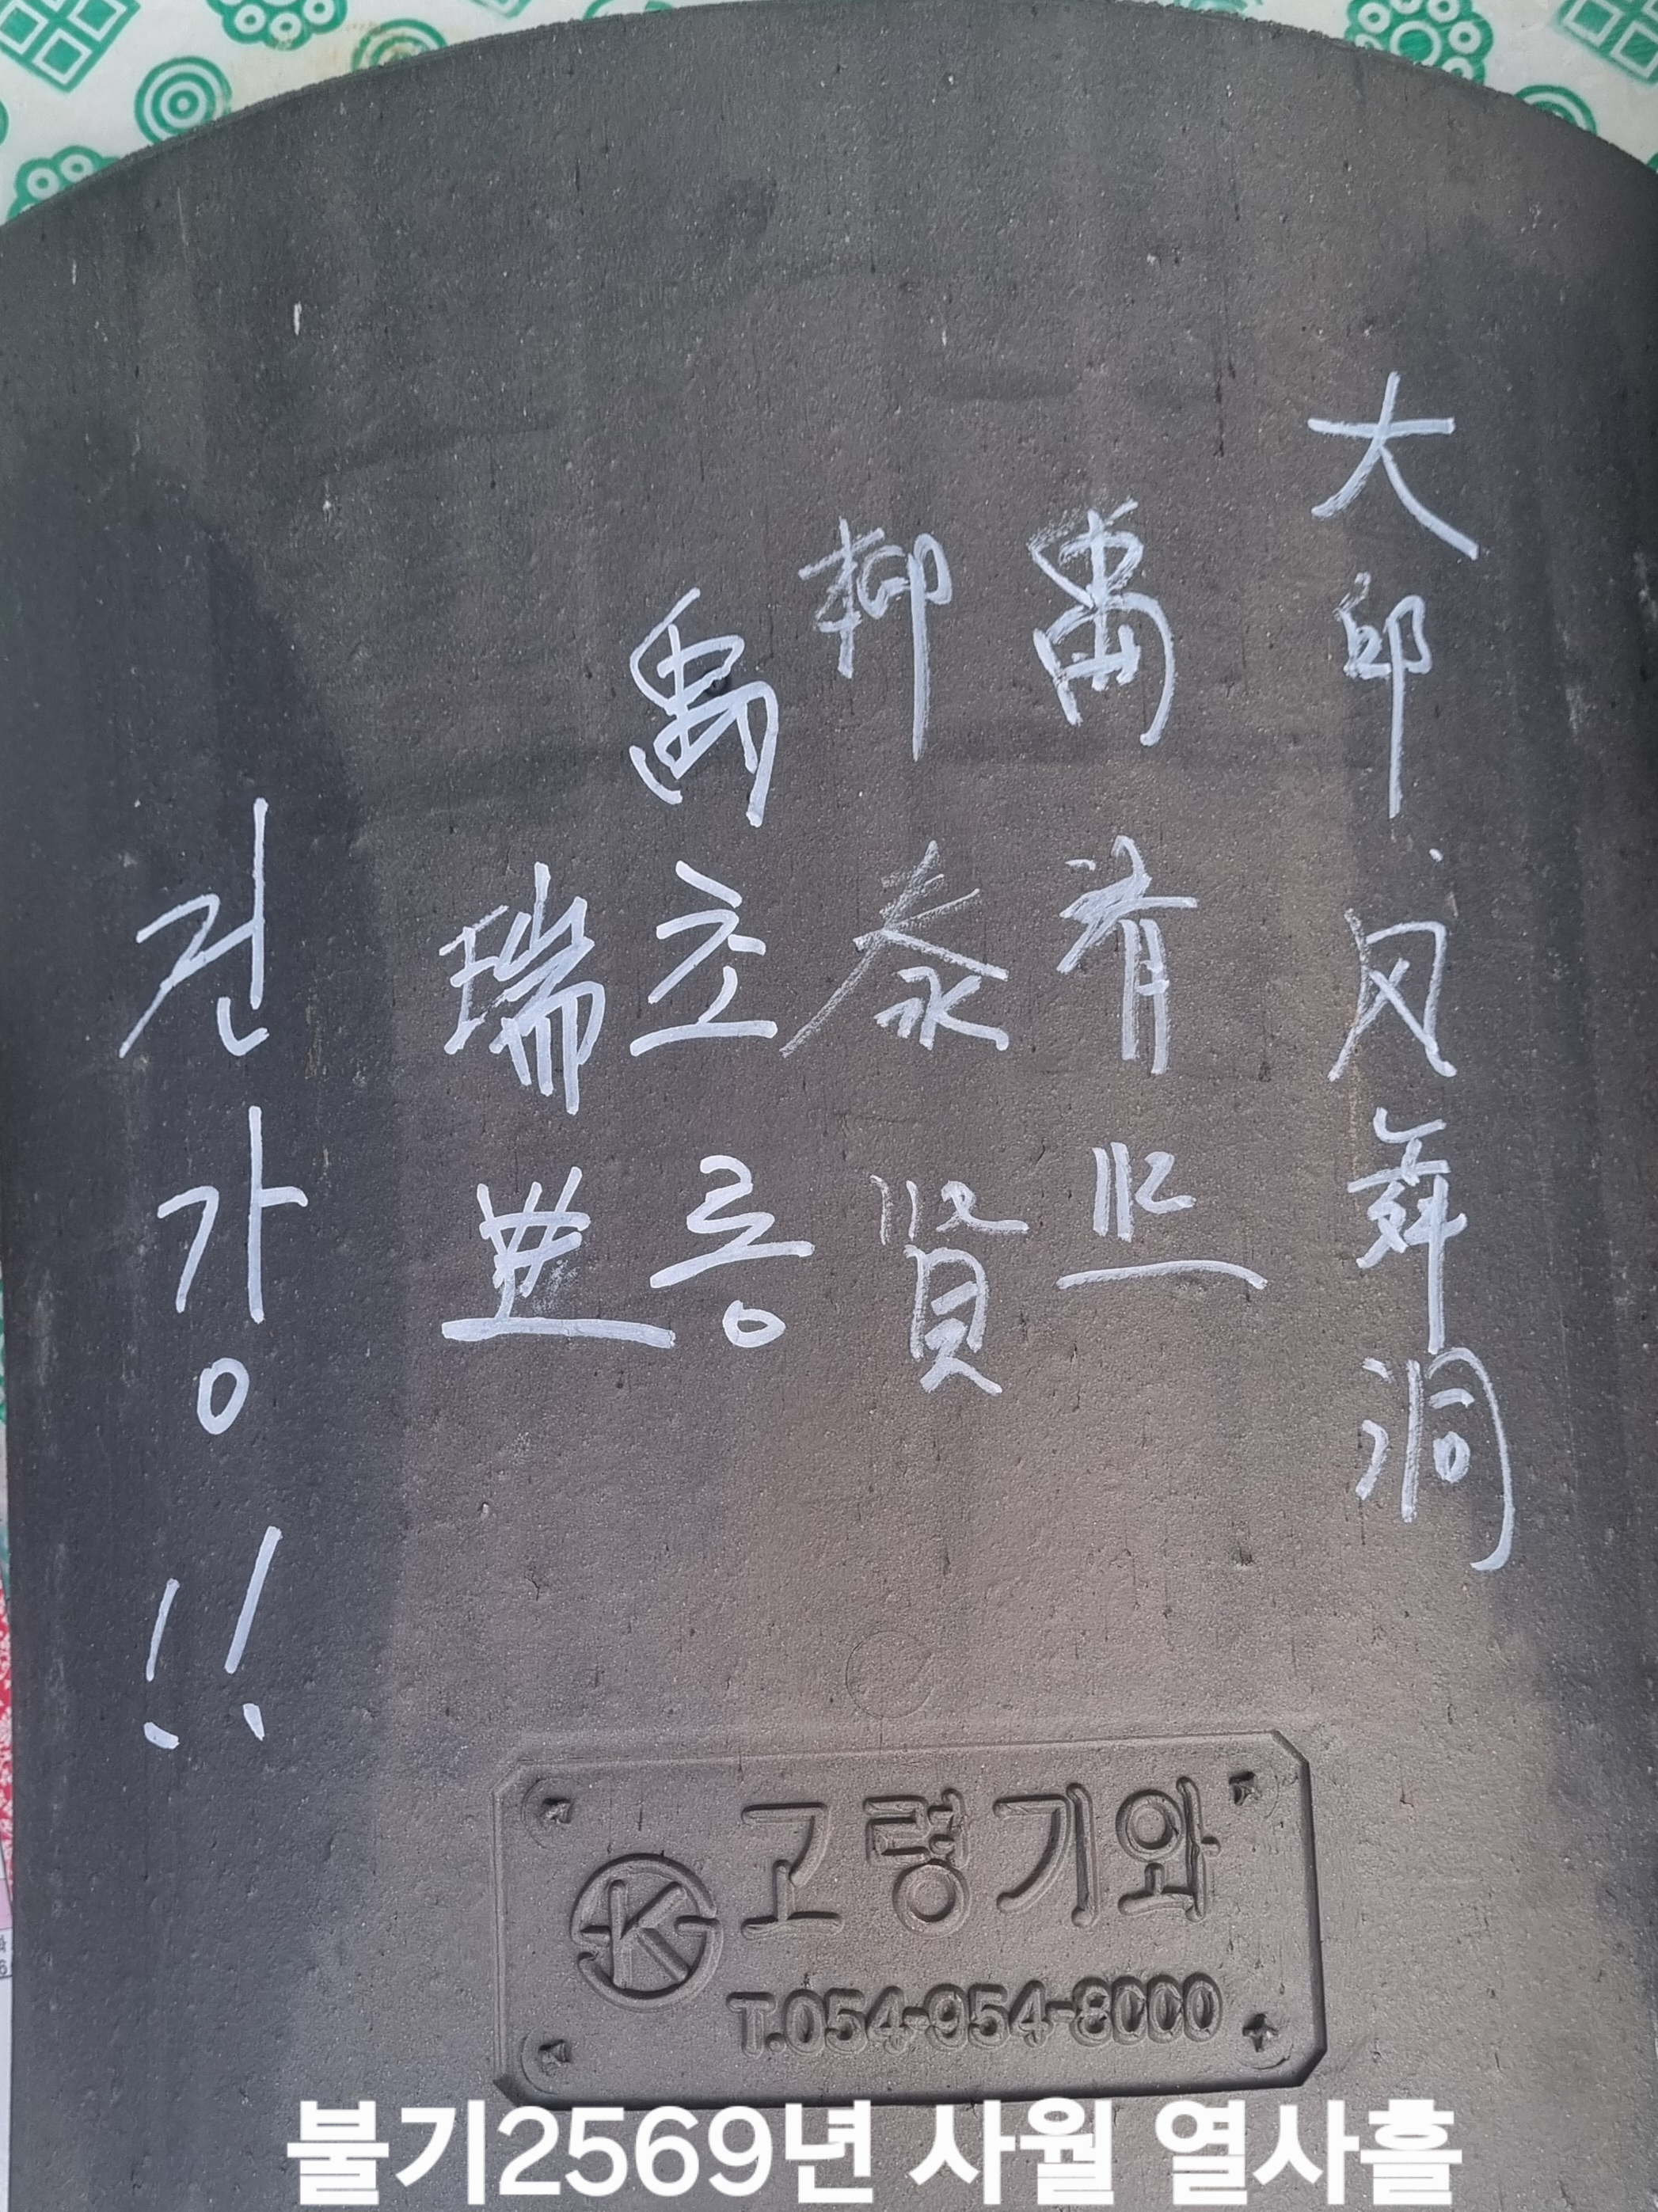 大邱 风舞洞
禹
柳泰賢
禹초롱
瑞
건강!!
고령기와
T.054-954-8000
불기2569년 사월 열사흘